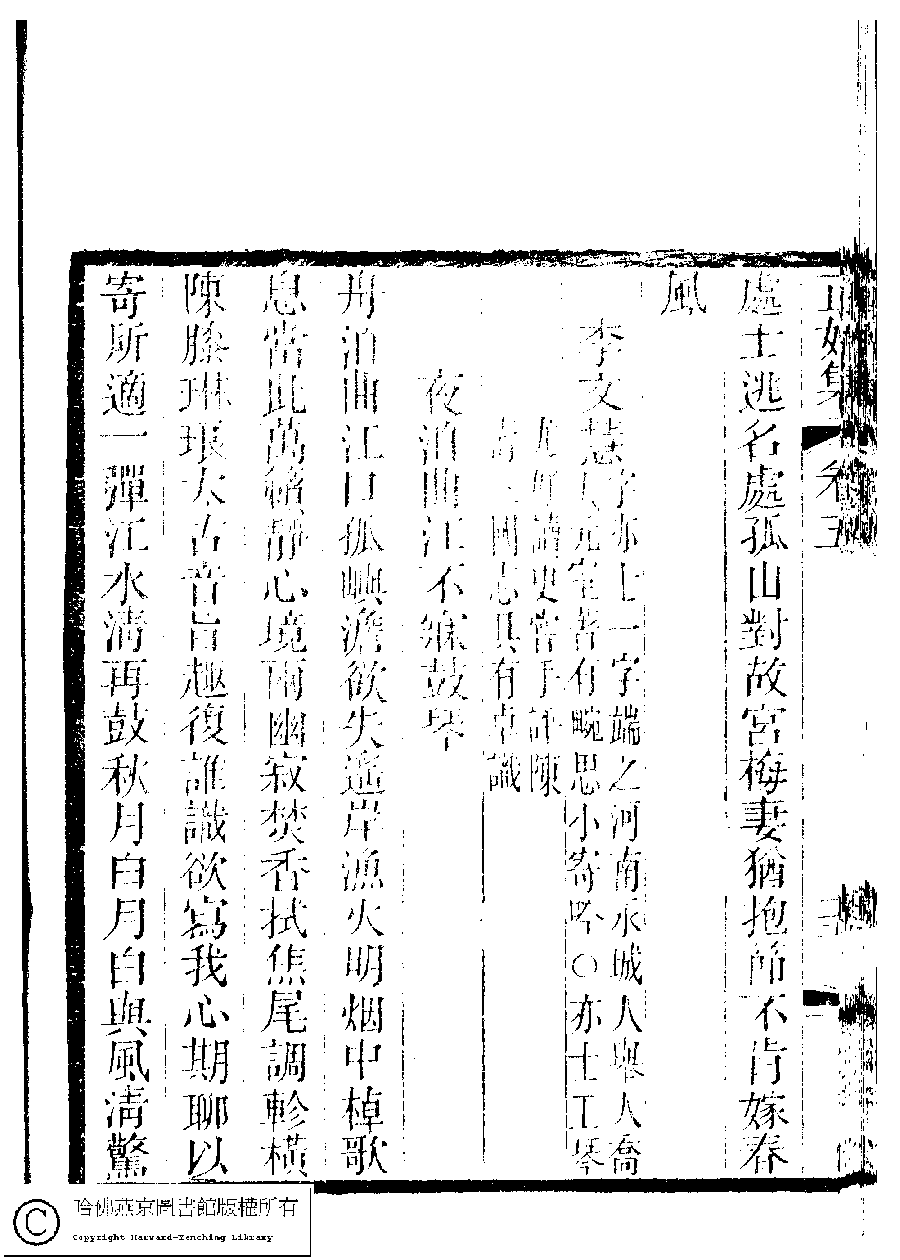 正始集 卷五
處士逃名處孤山對故宮梅妻猶抱節不肯嫁春
風
李文慧字亦士一字端之河南永城人舉人喬
元室著有畹思小寄吟○亦士工琴
尤好讀史嘗手評陳
壽三國志具有卓識
夜泊曲江不寐鼓琴
舟泊曲江口孤嶼澹欲失遥岸漁火明烟中棹歌
息當此萬籟靜心境兩幽寂焚香拭焦尾調軫橫
陳膝琳琅太古音旨趣復誰識欲寫我心期聊以
寄所適一彈江水清再鼓秋月白月白與風清驚
哈佛燕京圖書館版權所有
Copyright Harvard-Yenching Library